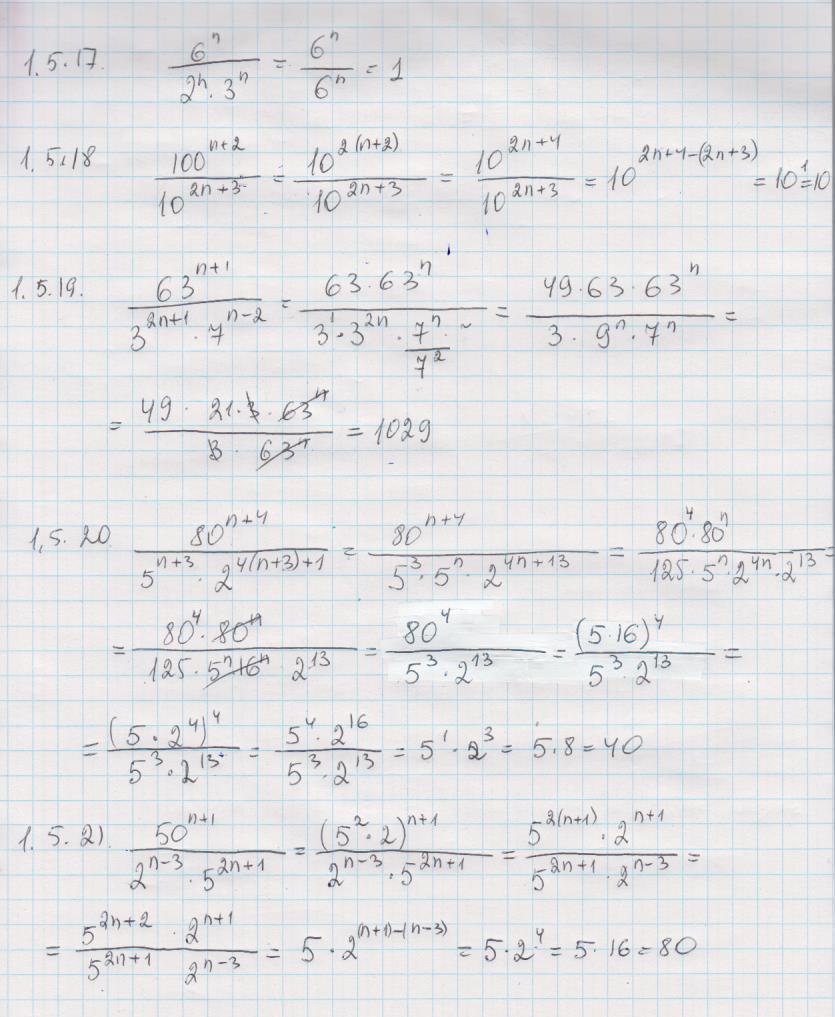 1.5.17. 6^n / (2^n · 3^n) = 6^n / 6^n = 1
1.5.18 100^(n+2) / 10^(2n+3) = 10^(2(n+2)) / 10^(2n+3) = 10^(2n+4) / 10^(2n+3) = 10^(2n+4-(2n+3)) = 10^1 = 10
1.5.19. 63^(n+1) / (3^(2n+1) · 7^(n-2)) = 63 · 63^n / (3^1 · 3^(2n) · 7^n / 7^2) = 49 · 63 · 63^n / (3 · 9^n · 7^n) =
= 49 · 21 · 3 · 63^n / (3 · 63^n) = 1029
1,5. 20. 80^(n+4) / (5^(n+3) · 2^(4(n+3)+1)) = 80^(n+4) / (5^3 · 5^n · 2^(4n+13)) = 80^4 · 80^n / (125 · 5^n · 2^(4n) · 2^13) =
= 80^4 · 80^n / (125 · 5^n 16^n · 2^13) = 80^4 / (5^3 · 2^13) = (5·16)^4 / (5^3 · 2^13) =
= (5 · 2^4)^4 / (5^3 · 2^13) = 5^4 · 2^16 / (5^3 · 2^13) = 5^1 · 2^3 = 5·8 = 40
1. 5. 21. 50^(n+1) / (2^(n-3) · 5^(2n+1)) = (5^2 · 2)^(n+1) / (2^(n-3) · 5^(2n+1)) = 5^(2(n+1)) · 2^(n+1) / (5^(2n+1) · 2^(n-3)) =
= 5^(2n+2) · 2^(n+1) / (5^(2n+1) 2^(n-3)) = 5 · 2^((n+1)-(n-3)) = 5·2^4 = 5·16 = 80